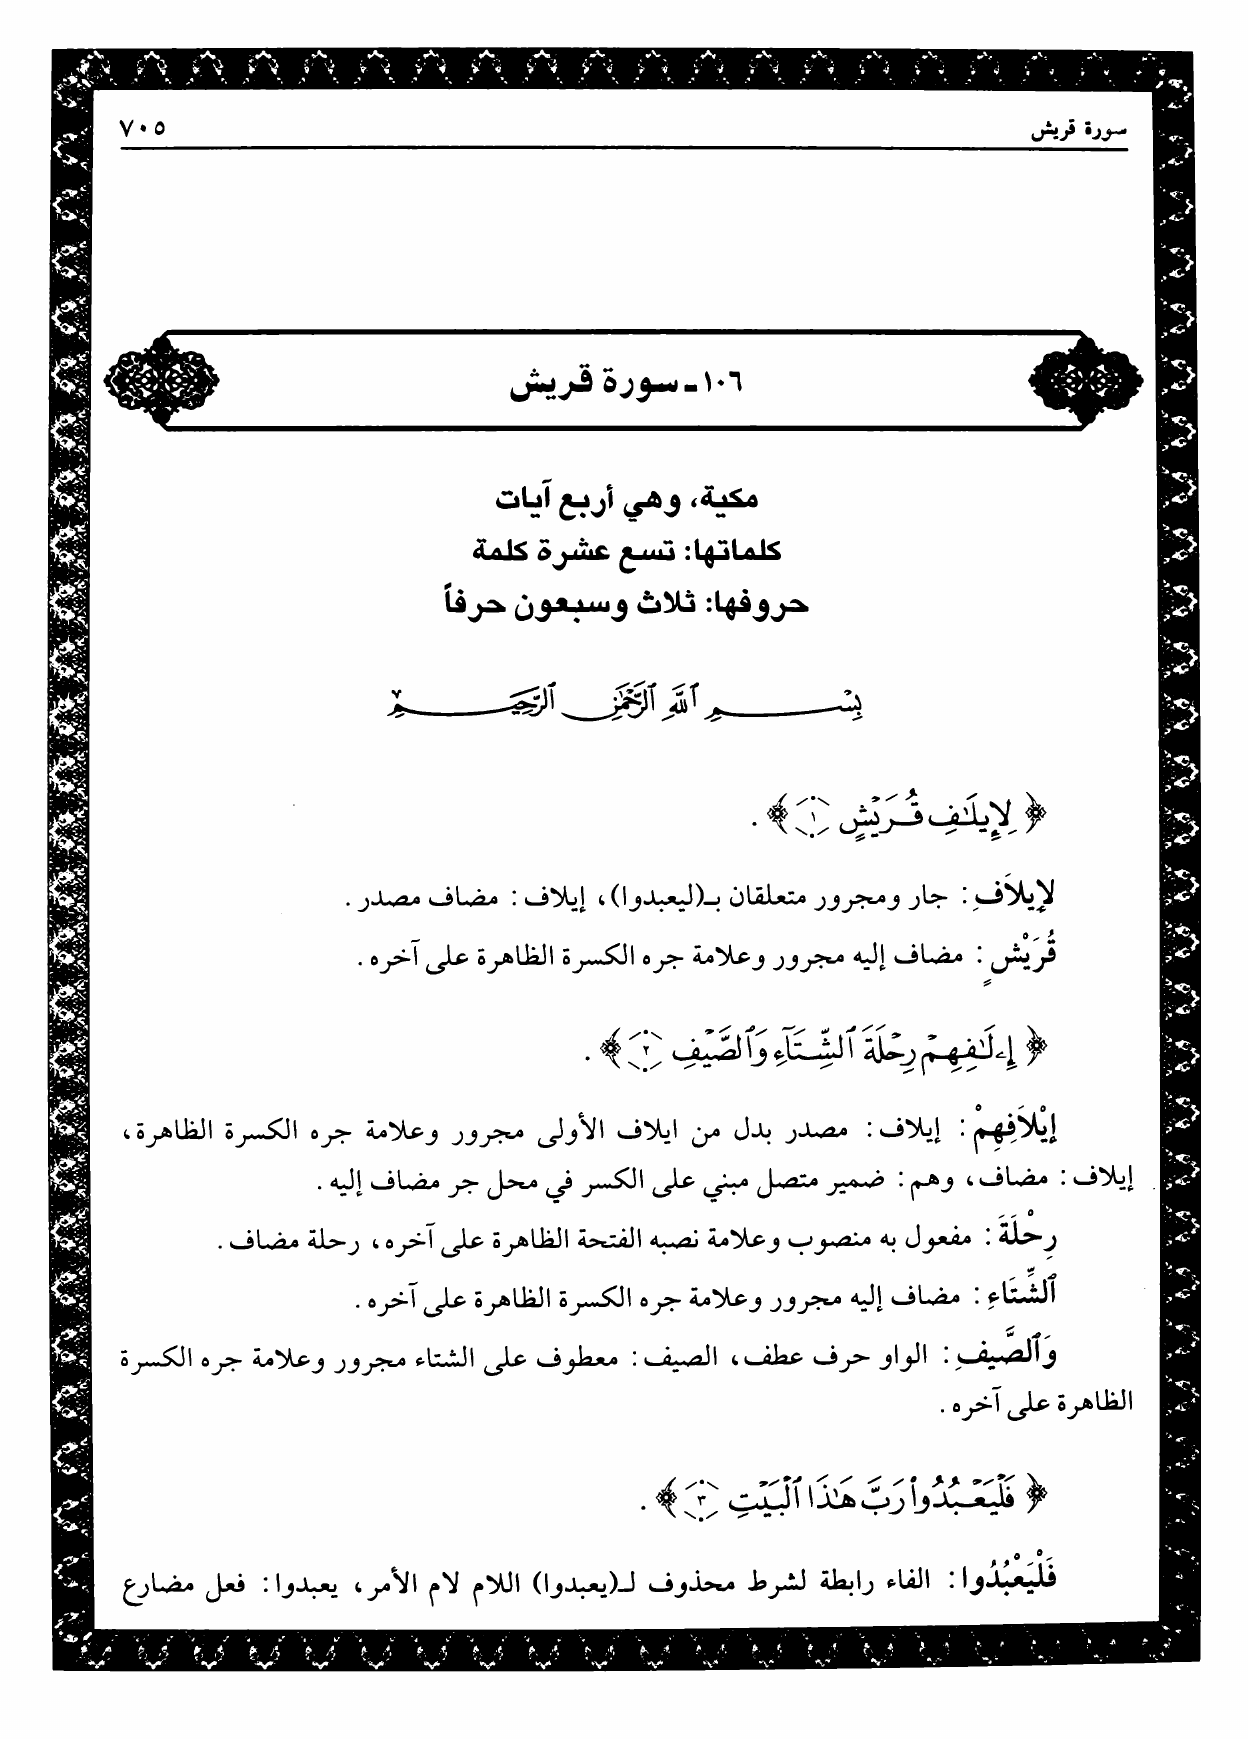 سورة قريش
٧٠٥
١٠٦ - سورة قريش
مكية، وهي أربع آيات
كلماتها: تسع عشرة كلمة
حروفها: ثلاث وسبعون حرفاً
بِسْمِ ٱللَّهِ ٱلرَّحْمَٰنِ ٱلرَّحِيمِ
﴿ لِإِيلَٰفِ قُرَيْشٍ ١ ﴾ .
لإِيلاَفِ: جار ومجرور متعلقان بـ(ليعبدوا)، إيلاف: مضاف مصدر.
قُرَيْشٍ: مضاف إليه مجرور وعلامة جره الكسرة الظاهرة على آخره.
﴿ إِۦلَٰفِهِمْ رِحْلَةَ ٱلشِّتَآءِ وَٱلصَّيْفِ ٢ ﴾ .
إِيْلاَفِهِمْ: إيلاف: مصدر بدل من ايلاف الأولى مجرور وعلامة جره الكسرة الظاهرة،
إيلاف: مضاف، وهم: ضمير متصل مبني على الكسر في محل جر مضاف إليه.
رِحْلَةَ: مفعول به منصوب وعلامة نصبه الفتحة الظاهرة على آخره، رحلة مضاف.
ٱلشِّتَاءِ: مضاف إليه مجرور وعلامة جره الكسرة الظاهرة على آخره.
وَٱلصَّيفِ: الواو حرف عطف، الصيف: معطوف على الشتاء مجرور وعلامة جره الكسرة
الظاهرة على آخره.
﴿ فَلْيَعْبُدُوا۟ رَبَّ هَٰذَا ٱلْبَيْتِ ٣ ﴾ .
فَلْيَعْبُدُوا: الفاء رابطة لشرط محذوف لـ(يعبدوا) اللام لام الأمر، يعبدوا: فعل مضارع